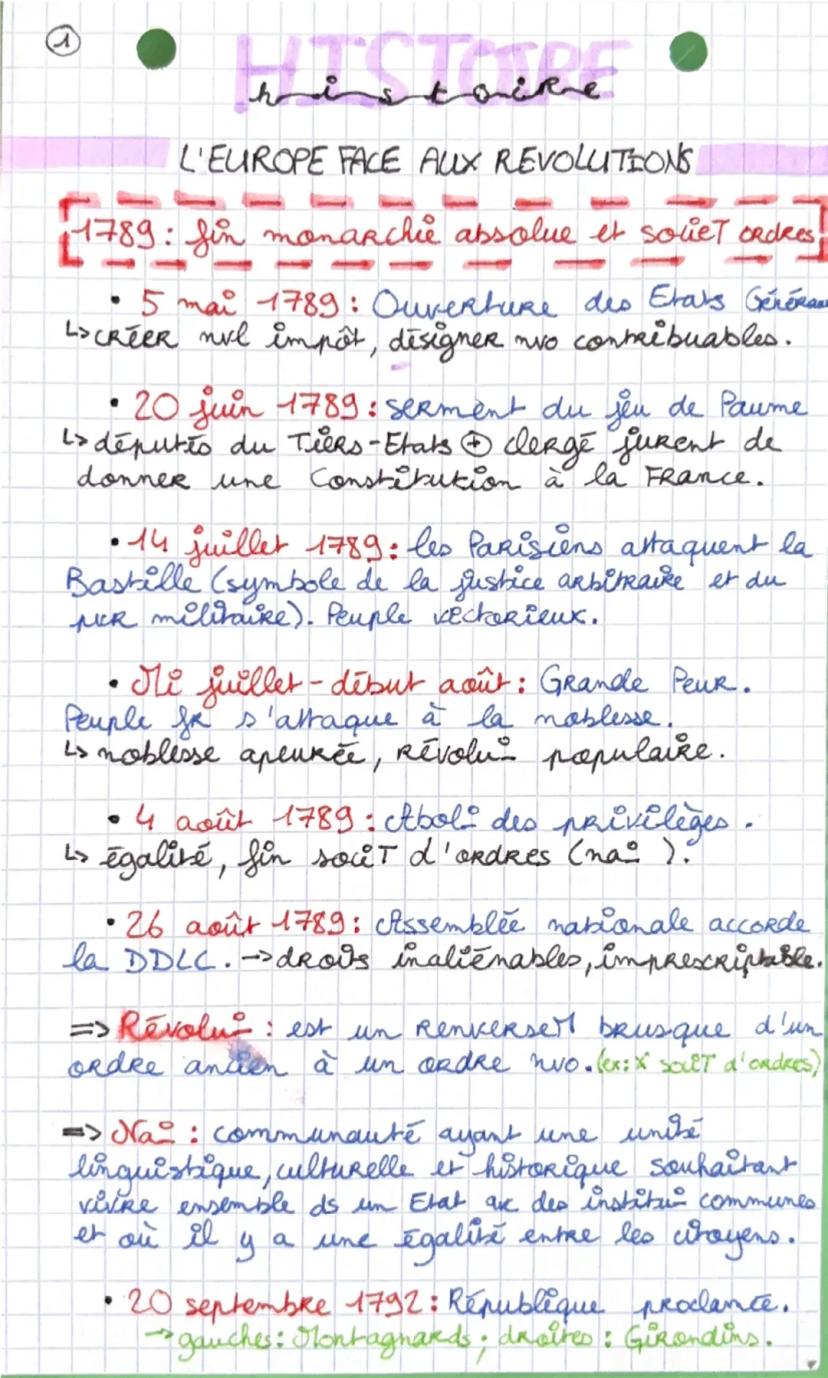 1
HISTOIRE
histoire
L'EUROPE FACE AUX REVOLUTIONS
1789 : fin monarchie absolue et sociéT ordres
• 5 mai 1789 : Ouverture des Etats Générau
↳ créer nvl impôt, désigner nvo contribuables.
• 20 juin 1789 : serment du jeu de Paume
↳ députés du Tiers-Etats ⊕ clergé jurent de
donner une Constitution à la France.
• 14 juillet 1789 : les Parisiens attaquent la
Bastille (symbole de la justice arbitraire et du
pvr militaire). Peuple victorieux.
• Mi juillet - début août : Grande Peur.
Peuple fr s'attaque à la noblesse.
↳ noblesse apeurée, révolu° populaire.
• 4 août 1789 : Aboli° des privilèges.
↳ égalité, fin sociéT d'ordres (na° ).
• 26 août 1789 : Assemblée nationale accorde
la DDLC. → droits inaliénables, imprescriptible.
=> Révolu° : est un renverseM brusque d'un
ordre ancien à un ordre nvo. (ex: X sociéT d'ordres)
=> Na° : communauté ayant une unité
linguistique, culturelle et historique souhaitant
vivre ensemble ds un Etat avc des institu° communes
et où il y a une égalité entre les citoyens.
• 20 septembre 1792 : République proclamée.
→ gauches : Montagnards ; droites : Girondins.